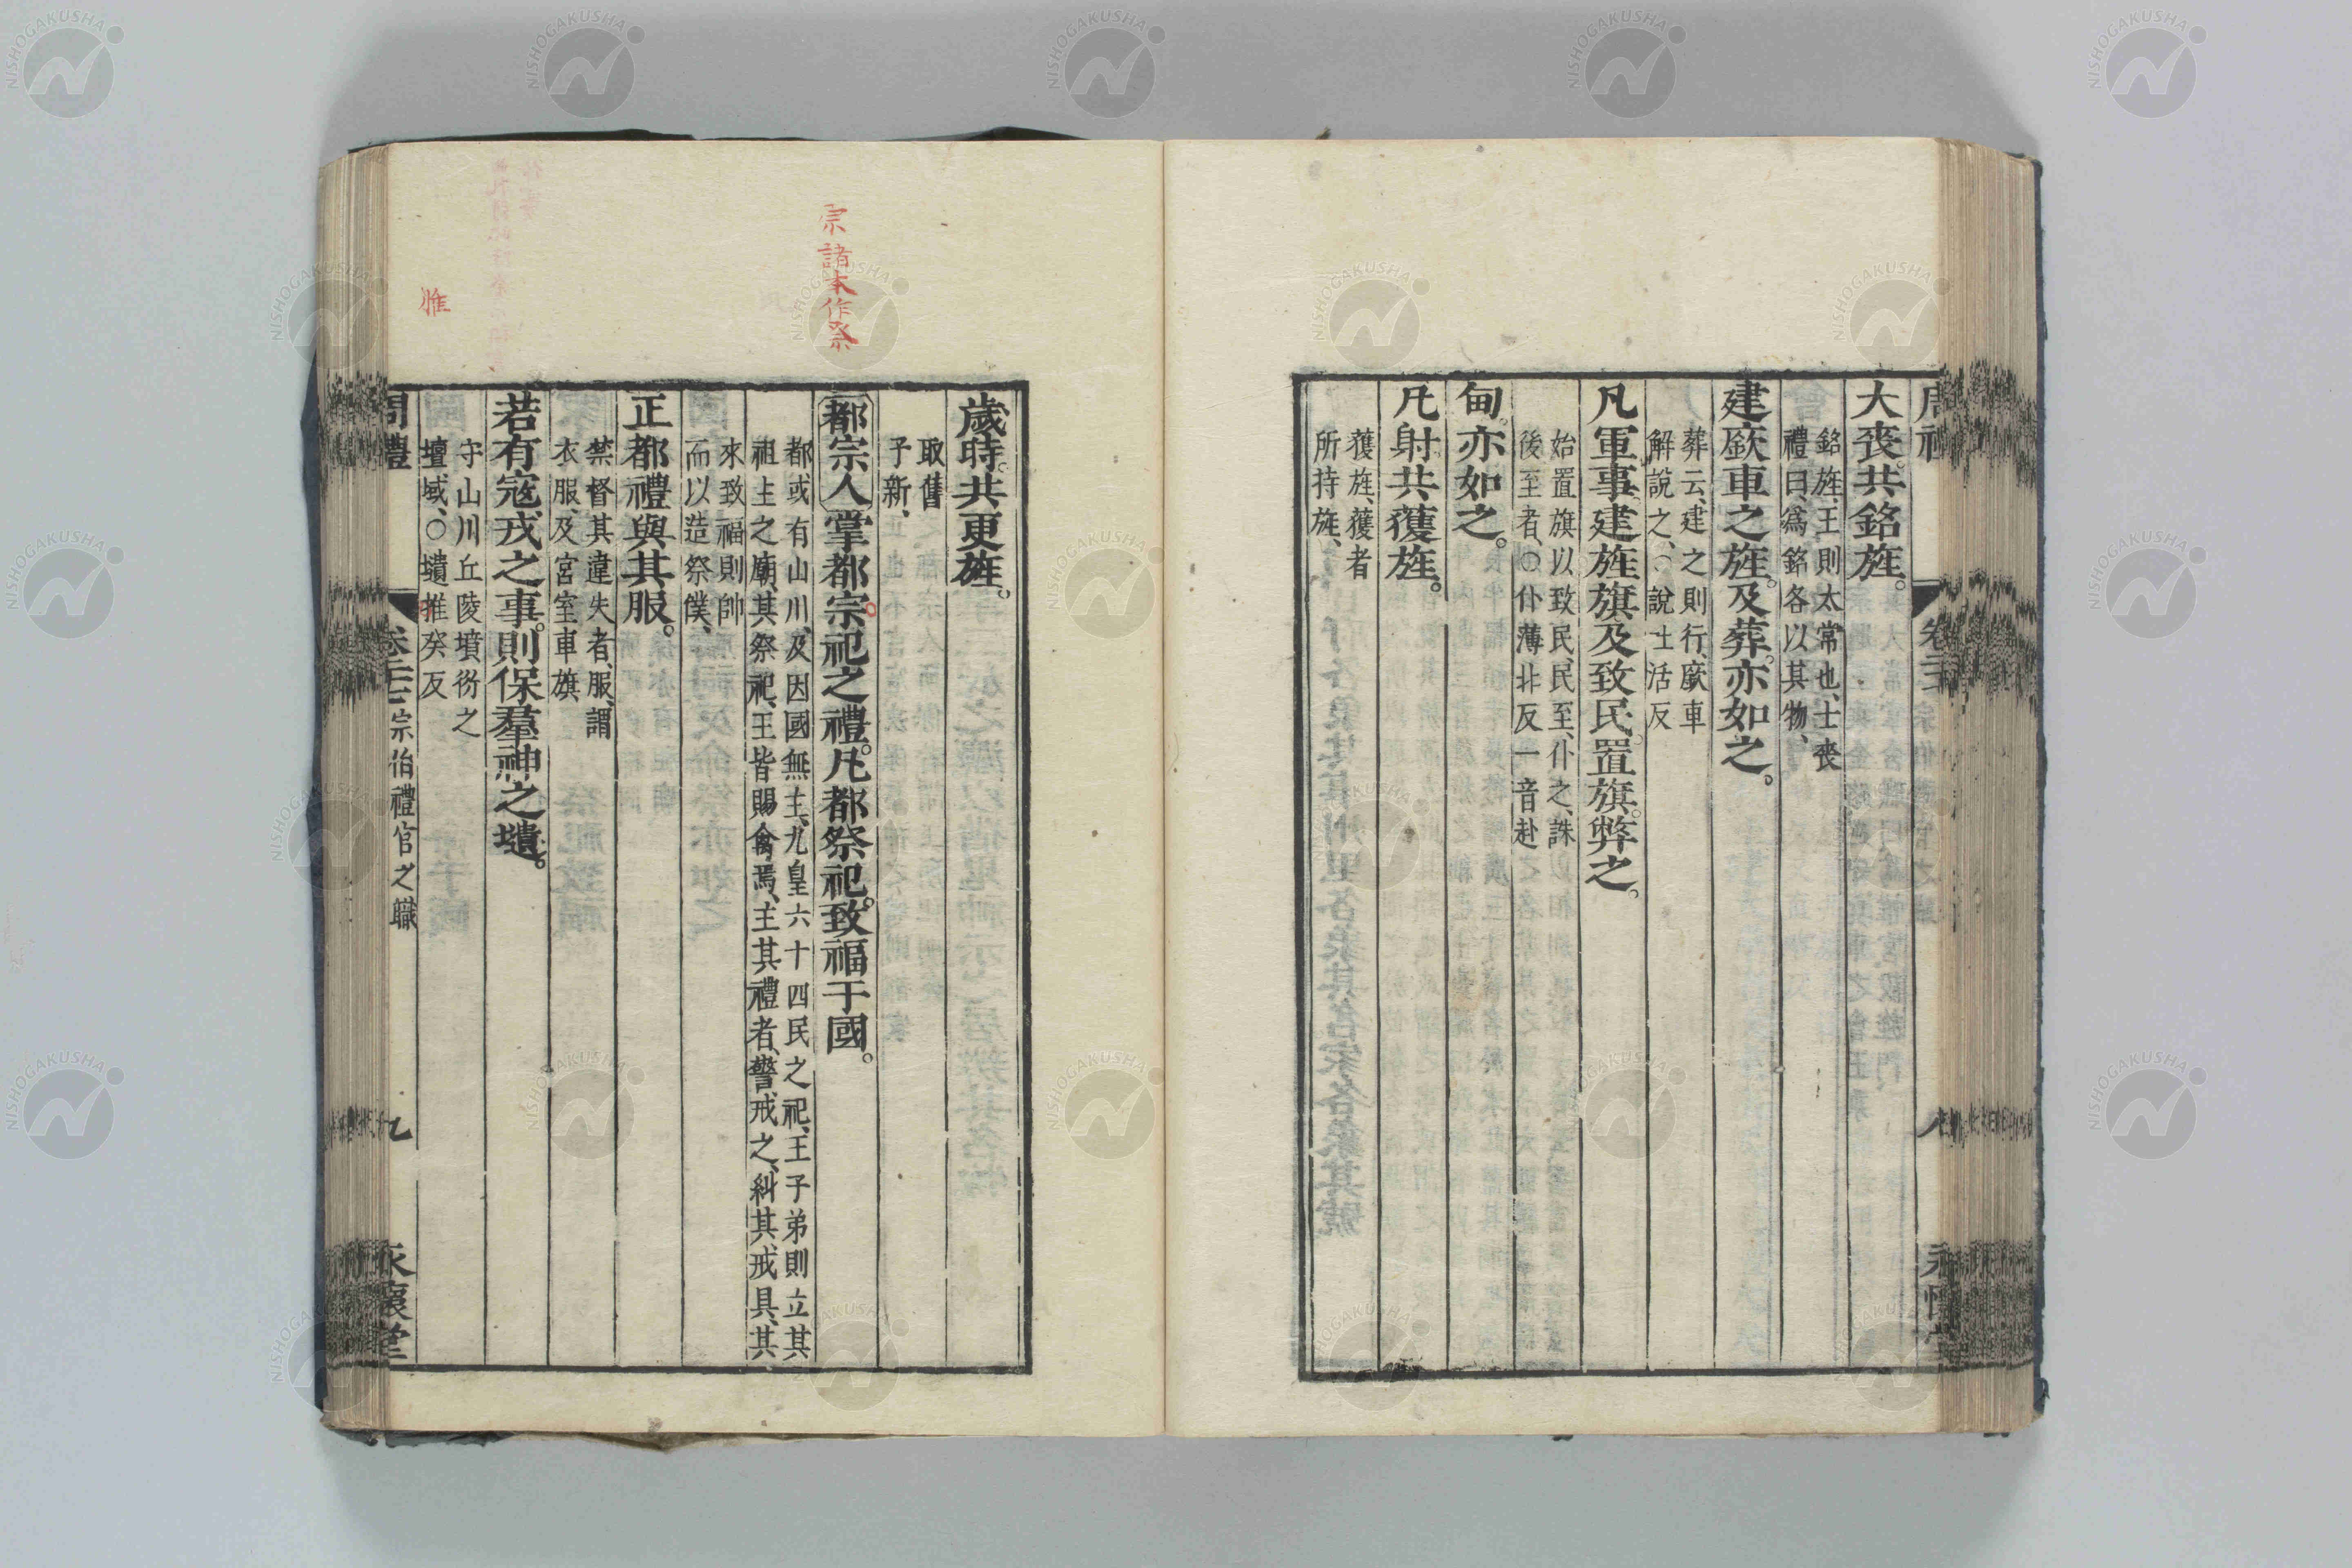 大喪。共銘旌。
銘旌、王則太常也、士喪
禮曰、爲銘各以其物、
建廞車之旌。及葬。亦如之。
葬云、建之則行、廞車
解說之、○說土活反
凡軍事。建旌旗及致民。置旗。弊之。
始置旗以致民、民至、仆之、誅
後至者、○仆薄北反一音赴
甸。亦如之。
凡射共獲旌。
獲旌、獲者
所持旌、
歲時。共更旌。
取舊
予新、
都宗人掌都宗祀之禮。凡都祭祀。致福于國。
都或有山川、及因國無主、九皇六十四民之祀、王子弟則立其
祖主之廟、其祭祀、王皆賜禽焉、主其禮者、警戒之、糾其戒具、其
來致福則帥
而以造祭僕、
正都禮與其服。
禁督其違失者、服、謂
衣服、及宮室車旗
若有寇戎之事。則保羣神之壝。
守山川丘陵墳衍之
壇域、○壝推癸反
周禮 卷二十七 宗伯禮官之職 九 永懷堂
宗諸本作祭
惟
NISHOGAKUSHA